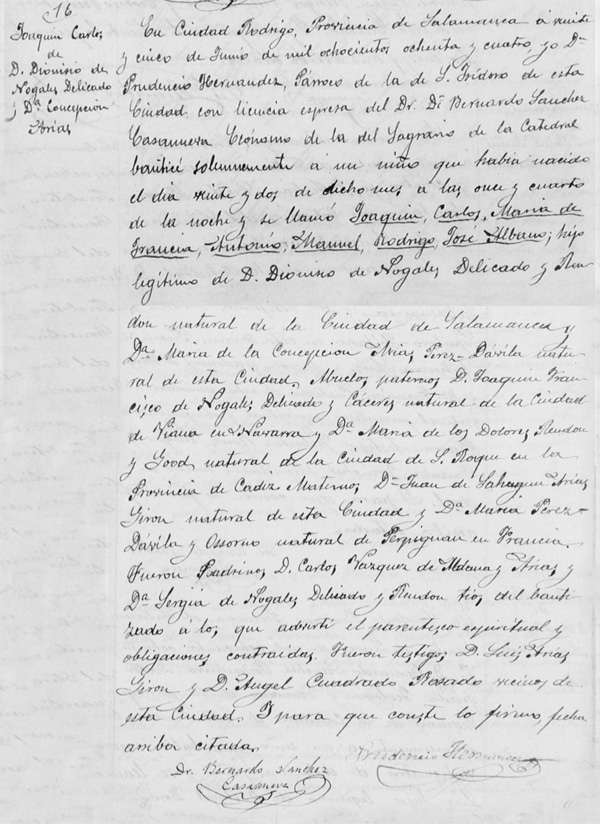 16
Joaquin Carlos
de
D. Dionisio de
Nogales Delicado
y Dª Concepcion
Arias
En Ciudad Rodrigo, Provincia de Salamanca á veinte
y cinco de Junio de mil ochocientos ochenta y cuatro, yo Dn
Prudencio Hernandez, Párroco de la de S. Isidoro de esta
Ciudad con licencia espresa del Dr. Dn Bernardo Sanchez
Casanueva Ecónomo de la del Sagrario de la Catedral
bauticé solemnemente á un niño que habia nacido
el dia veinte y dos de dicho mes á las once y cuarto
de la noche y se llamó Joaquin, Carlos, Maria de
Antonio, Manuel, Rodrigo, José Albano; hijo
legítimo de D. Dionisio de Nogales Delicado y Ren-
don natural de la Ciudad de Salamanca y
Dª Maria de la Concepcion Arias Perez-Dávila natu-
ral de esta Ciudad. Abuelos paternos D. Joaquin Fran-
cisco de Nogales Delicado y Cáceres natural de la Ciudad
de Viana en Navarra y Dª Maria de los Dolores Rendon
y Good natural de la Ciudad de S. Roque en la
Provincia de Cadiz Maternos; Dn Juan de Sahagun Arias
Giron natural de esta Ciudad y Dª Maria Perez-
Dávila y Ossorno natural de Perpignan en Francia.
Fueron Padrinos D. Carlos Vazquez de Aldana y Arias y
Dª Sergia de Nogales Delicado y Rendon tios del bauti-
zado á los que advertí el parentesco espiritual y
obligaciones contraidas. Fueron testigos D. Luis Arias
Giron y D. Angel Cuadrado Rosado vecinos de
esta Ciudad. I para que conste lo firmo fecha
arriba citada.
Dr. Bernardo Sanchez
Casanueva
Prudencio Hernandez